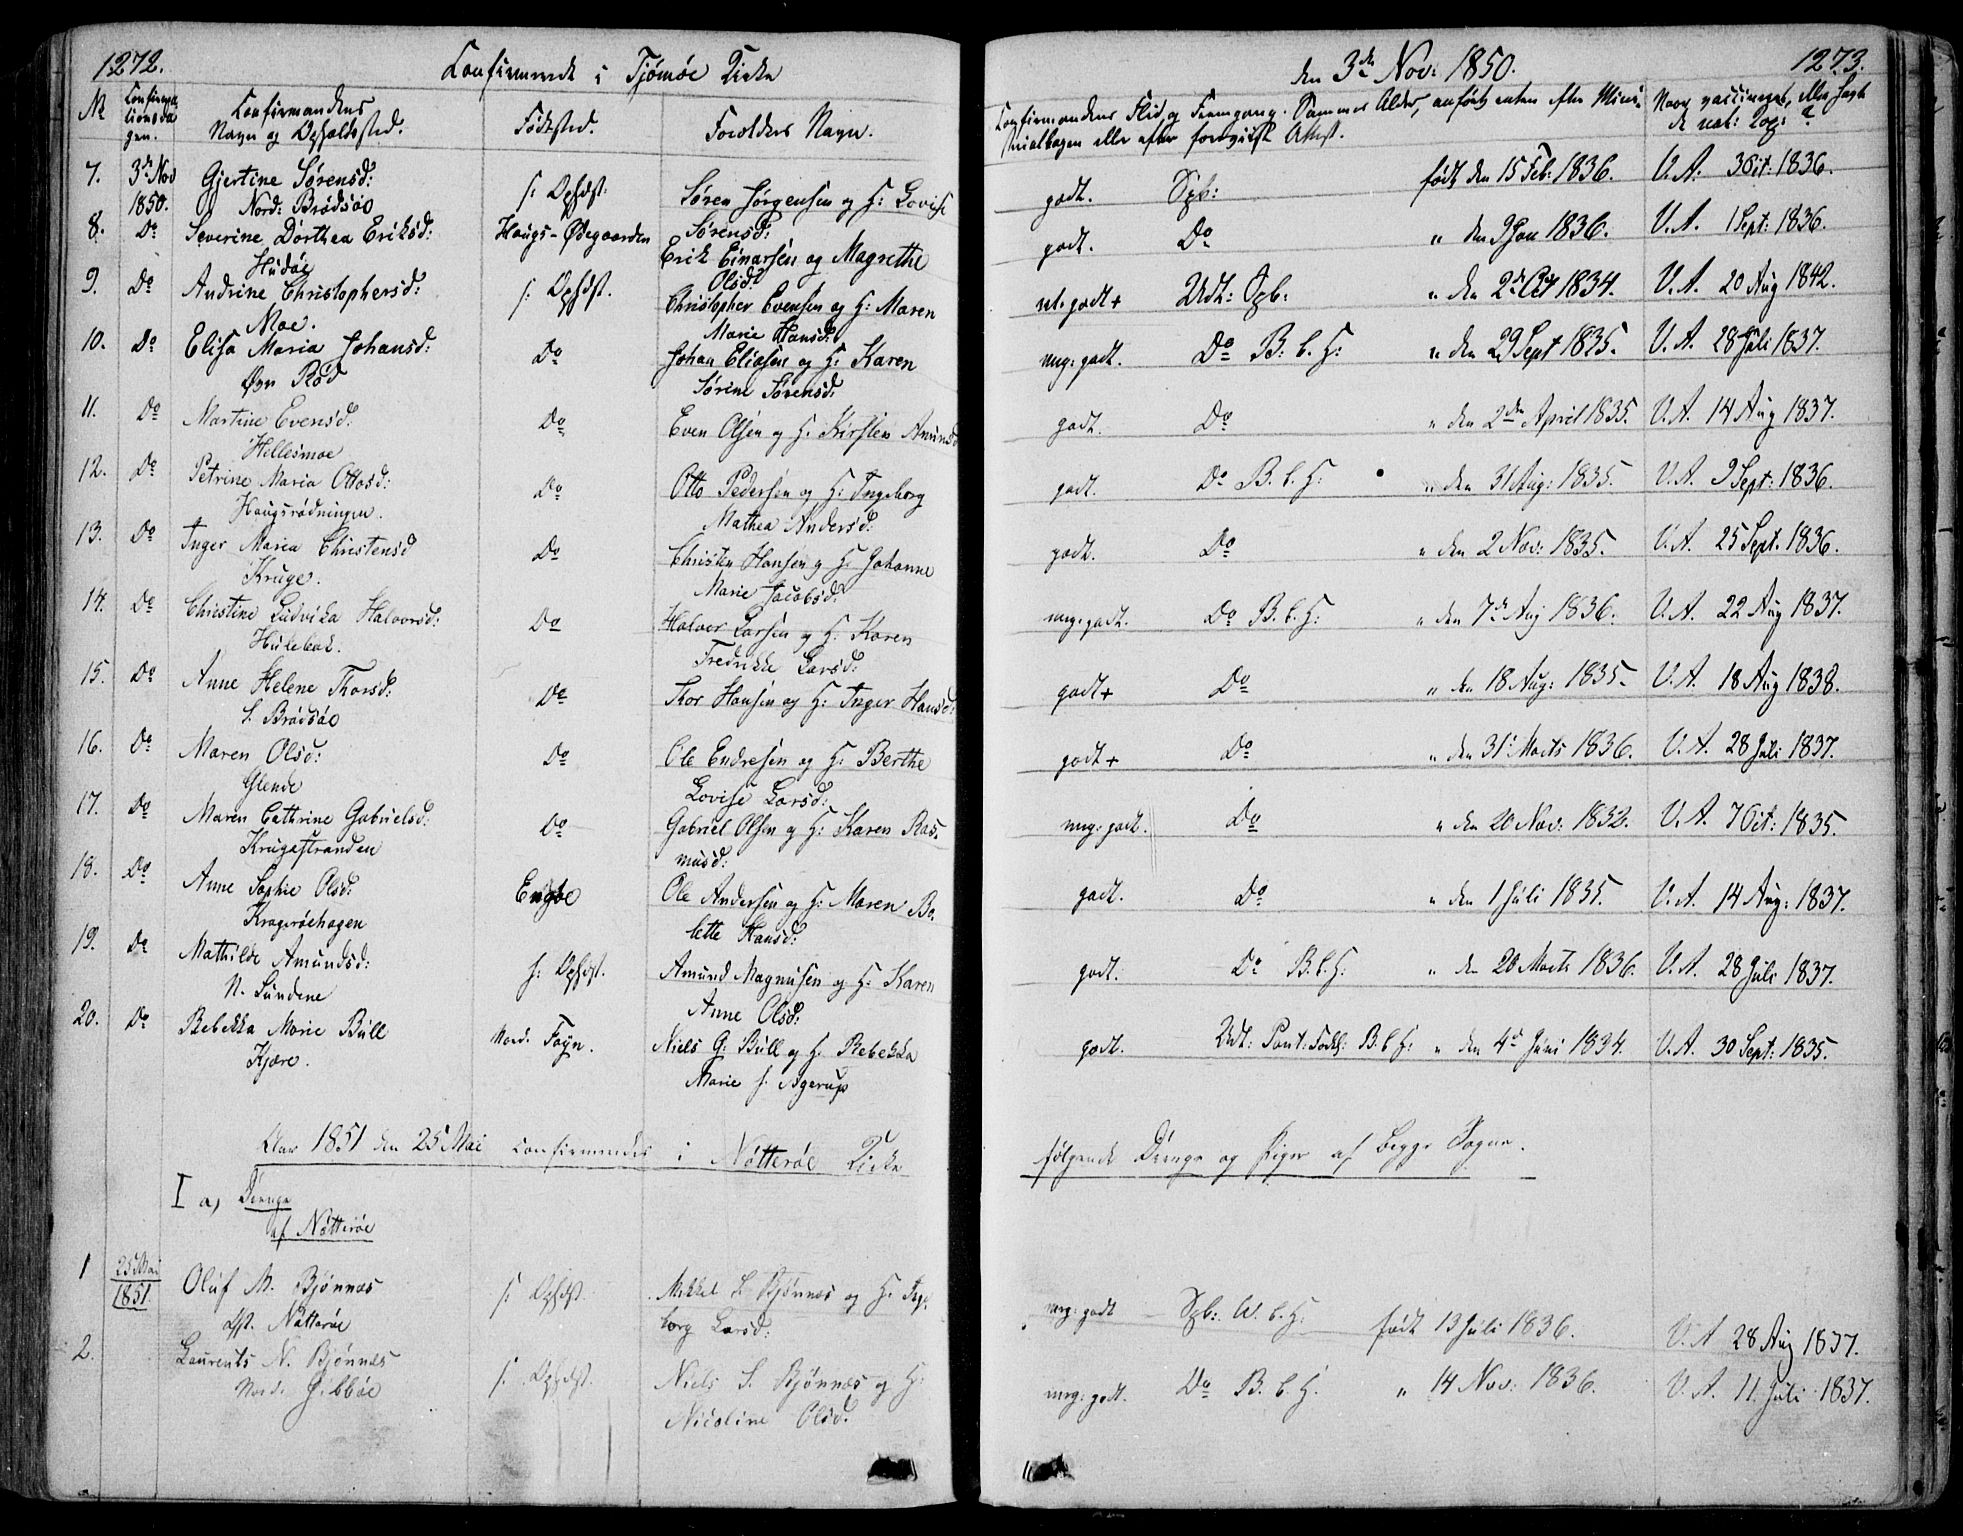 1272.
Confirmerede i Tjømøe Kirke
№
Confirma
tionsda
gen.
Confirmandens
Navn og Opholdssted.
Fødested.
Forældres Navn.
7.
3de Nov
1850.
Gjertine Sørensd:
Nord: Brødsøe
s: Opholdst:
Søren Jørgensen og H: Lovise
Sørensd:
8.
Do
Severine Dorthea Eriksd:
Hudøe
Haugs-Ødegaarden
Erik Einarsen og Magrethe
Olsd:
9.
Do
Andrine Christophersd:
Moe.
s: Opholdst.
Christopher Evensen og H: Maren
Marie Hansd:
10.
Do
Elisa Maria Johansd:
Øvr Rød
Do
Johan Eliasen og H: Karen
Sørine Sørensd:
11.
Do
Martine Evensd:
Hellesmoe
Do
Even Olsen og H: Kirsten Amundsd
12.
Do
Petrine Maria Ottosd:
Haugsrødningen.
Do
Otto Pedersen og H: Ingeborg
Mathea Andersd:
13.
Do
Inger Maria Christensd
Kruge.
Do
Christen Hansen og H: Johanne
Marie Jacobsd:
14.
Do
Christine Ludvika Halvorsd:
Hulebak.
Do
Halvor Larsen og H: Karen
Fredrikke Larsd:
15.
Do
Anne Helene Thorsd:
S. Brødsøe
Do
Thor Hansen og H: Inger Hansd:
16.
Do
Maren Olsd:
Glende
Do
Ole Endresen og H: Berthe
Lovise Larsd:
17.
Do
Maren Cathrine Gabrielsd:
Krugestranden
Do
Gabriel Olsen og H: Karen Ras-
musd:
18.
Do
Anne Sophie Olsd:
Kragerøehagen
Engøe
Ole Andersen og H: Maren Bo-
lette Hansd:
19.
Do
Mathilde Amundsd:
N. Sundene
s: Opholdst.
Amund Magnusen og H: Karen
Anne Olsd:
20.
Do
Rebekka Marie Bull
Kjære.
Nord: Føyn.
Niels G: Bull og H: Rebekka
Marie f. Agerup
Aar 1851 den 25 Mai confirmeredes i Nøtterøe Kirke
I a, Drenge
af Nøtterøe
1
25 Mai
1851.
Oluf M. Bjønnes
Nøtterøe
s: Opholdst
Mikkel S. Bjønnes og H: Inge-
borg Larsd:
2.
Laurents N. Bjønnes
Nord: Gibbøe
s: Opholdst.
Niels S. Bjønnes og H:
Nicoline Olsd:
den 3de Nov: 1850.
1273.
Confirmandens Flid og Fremgang. Sammes Alder, anført enten efter Mini-
sterialbogen eller efter foreviist Attest.
Naar vaccineret, eller havt
de nat: Kop: ?
godt. Spb: født den 15 Feb: 1836. V. A. 3 Oct: 1836.
godt. Do " den 9 Jan 1836. V. A. 1 Sept: 1836.
godt + Udt: Spb: " den 2de Oct 1834. V. A. 20 Aug 1842.
mg: godt. Do B: b. H: " den 29 Sept 1835. V. A. 28 Juli 1837.
godt. Do " den 2den April 1835. V. A. 14 Aug 1837.
godt. Do B. b. H: " den 31 Aug: 1835. V. A. 9 Sept: 1836.
godt. Do " den 2 Nov: 1835. V. A. 25 Sept. 1836.
mg: godt. Do B. b. H: " den 7de Aug 1836. V. A. 22 Aug 1837.
godt + Do " den 18 Aug: 1835. V. A. 18 Aug 1838.
godt + Do " den 31 Marts 1836. V. A. 28 Juli 1837.
mg: godt. Do " den 20 Nov: 1832. V. A. 7 Oct: 1835.
godt. Do " den 1 Juli 1835. V. A. 14 Aug: 1837.
godt. Do B. b. H: " den 20 Marts 1836. V. A. 28 Juli 1837.
godt. Udt: Pont: B. b H: " den 4de Juni 1834. V. A. 30 Sept: 1835.
følgende Drenge og Piger af begge Sogne.
mg: godt Spb: W. b. H: født 13 Juli 1836. V. A 28 Aug 1837.
mg: godt. Do B. b. H: " 14 Nov: 1836. V. A. 11 Juli 1837.